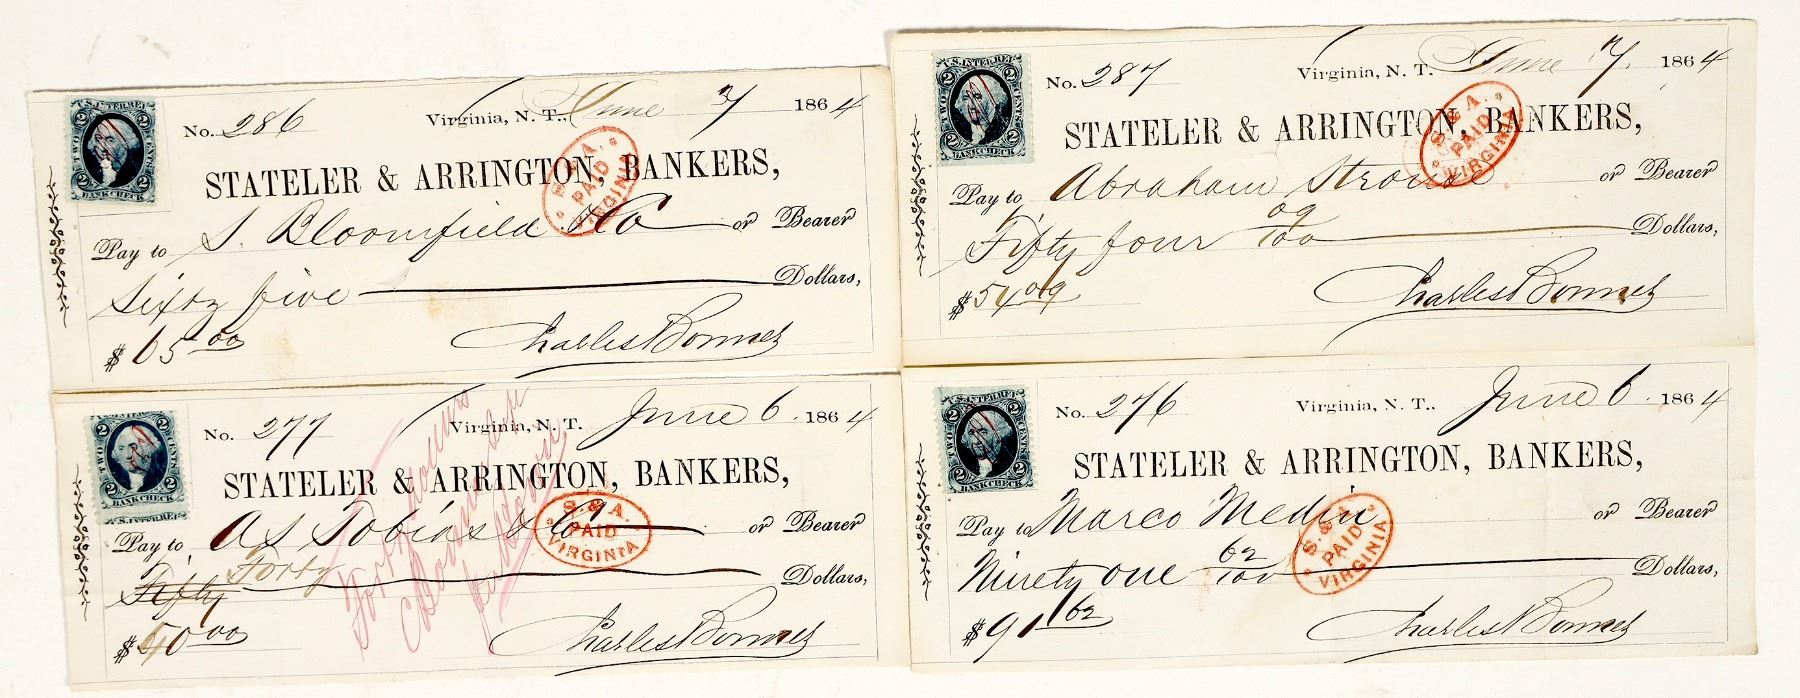 U.S. INTER. REV.
2 2
TWO CENTS
2 2
BANK CHECK
No. 286 Virginia, N. T., June 7 1864
STATELER & ARRINGTON, BANKERS,
S. & A.
PAID
VIRGINIA
Pay to S. Bloomfield & Co or Bearer
Sixty five Dollars,
$65.00 Charles Bonner
U.S. INTER. REV.
2 2
TWO CENTS
2 2
BANK CHECK
No. 287 Virginia, N. T. June 7. 1864
STATELER & ARRINGTON, BANKERS,
S. & A.
PAID
VIRGINIA
Pay to Abraham Strouse or Bearer
Fifty four 09/100 Dollars,
$54 09 Charles Bonner
U.S. INTER. REV.
2 2
TWO CENTS
2 2
BANK CHECK
U.S. INTER. REV.
No. 277 Virginia, N. T. June 6. 1864
STATELER & ARRINGTON, BANKERS,
S. & A.
PAID
VIRGINIA
Pay to A S Tobias & Co or Bearer
Fifty Forty Dollars,
$40.00 Charles Bonner
Forty Dollars
U.S. INTER. REV.
2 2
TWO CENTS
2 2
BANK CHECK
No. 276 Virginia, N. T.. June 6. 1864
STATELER & ARRINGTON, BANKERS,
S. & A.
PAID
VIRGINIA
Pay to Marco Medin or Bearer
Ninety one 62/100 Dollars,
$91 62 Charles Bonner